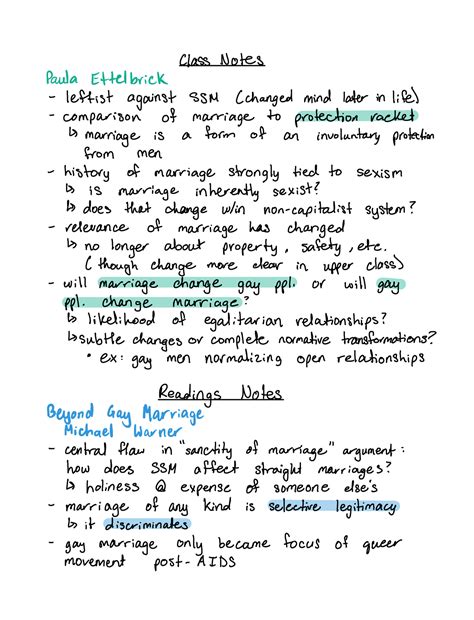 Class Notes
Paula Ettelbrick
- leftist against SSM (changed mind later in life)
- comparison of marriage to protection racket
↳ marriage is a form of an involuntary protection
from men
- history of marriage strongly tied to sexism
↳ is marriage inherently sexist?
↳ does that change w/in non-capitalist system?
- relevance of marriage has changed
↳ no longer about property, safety, etc.
(though change more clear in upper class)
- will marriage change gay ppl. or will gay
ppl. change marriage?
↳ likelihood of egalitarian relationships?
↳ subtle changes or complete normative transformations?
• ex: gay men normalizing open relationships
Readings Notes
Beyond Gay Marriage
Michael Warner
- central flaw in "sanctity of marriage" argument:
how does SSM affect straight marriages?
↳ holiness @ expense of someone else's
- marriage of any kind is selective legitimacy
↳ it discriminates
- gay marriage only became focus of queer
movement post-AIDS